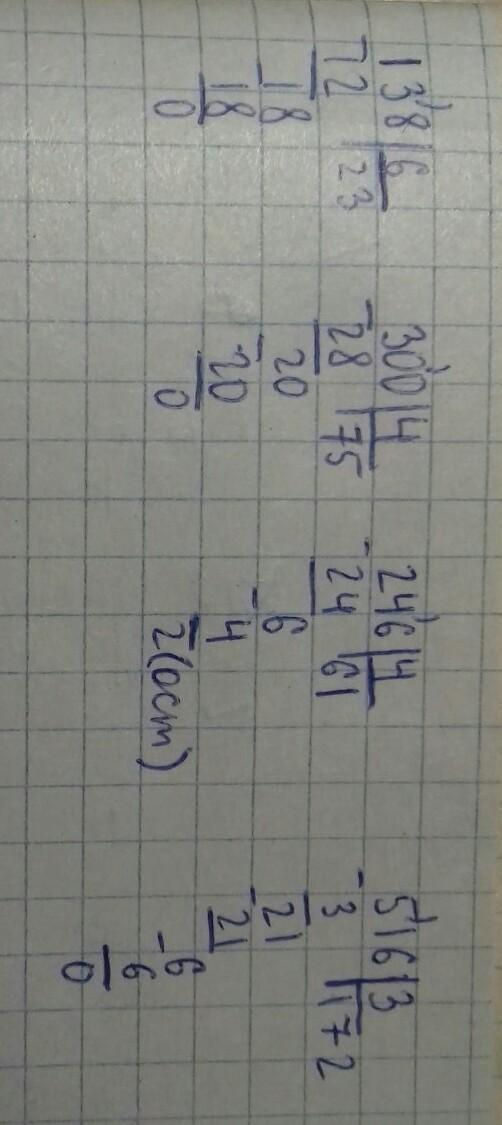 138 | 6
-12 | 23
-18
18
0
300 | 4
-28 | 75
20
-20
0
246 | 4
-24 | 61
-6
4
2 (ост)
516 | 3
-3 | 172
-21
21
-6
6
0